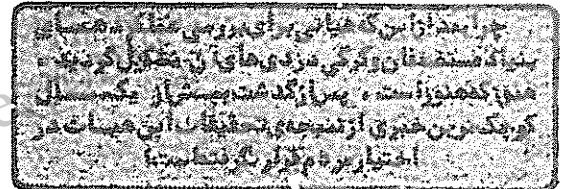 چرا بعد از این که هیاتی برای بررسی عملکردهای
بنیاد مستضعفان و گرگی دزدی های آن تشکیل گردید،
هنوز که هنوز است، پس از گذشت بیش از یکسال
کوچک ترین خبری از نتیجه ی تحقیقات این هیات در
اختیار مردم قرار نگرفته است؟